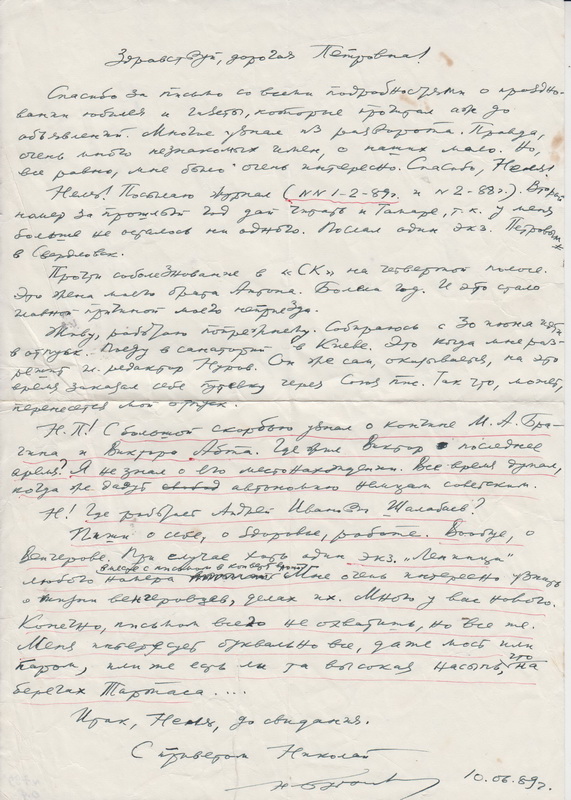 Здравствуй, дорогая Петровна!
Спасибо за письмо со всеми подробностями о праздно-
вании юбилея и газеты, которые прочитал аж до
объявлений. Многие узнал из разворота. Правда,
очень много незнакомых имен, о наших мало. Но,
все равно, мне было очень интересно. Спасибо, Неля!
Неля! Посылаю журнал (NN 1-2-89г. и N 2-88г.). Второй
номер за прошлый год дай читать и Тамаре, т.к. у меня
больше не осталось ни одного. Послал один экз. Петровым
в Свердловск.
Прочти соболезнование в «СК» на четвертой полосе.
Это жена моего брата Антона. Болела год. И это стало
главной причиной моего неприезда.
Живу, работаю по-прежнему. Собираюсь с 30 июня идти
в отпуск. Поеду в санаторий в Киеве. Это когда мне раз-
решит гл. редактор Нуров. Он же сам, оказывается, на это
время заказал себе путевку через Союз пис. Так что, может,
перенесется мой отпуск.
Н.П! С большой скорбью узнал о кончине М. А. Бра-
гина и Виктора Абта. Где жил Виктор последнее
время? Я не знал о его местонахождении. Все время думал,
когда же дадут автономию немцам советским.
Н! Где работает Андрей Иванович Шалабаев?
Пиши о себе, о здоровье, работе. Вообще, о
Венгерове. При случае хоть один экз. „Ленинца"
любого номера вместе с письмом в конверт Мне очень интересно узнать
о жизни венгеровцев, делах их. Много у вас нового.
Конечно, письмом всего не охватить, но все же.
Меня интересует буквально все, даже мост или
паром, или же есть ли та высокая насыпь, что на
берегах Тартаса....
Итак, Неля, до свидания.
С приветом Николай
10.06.89г.